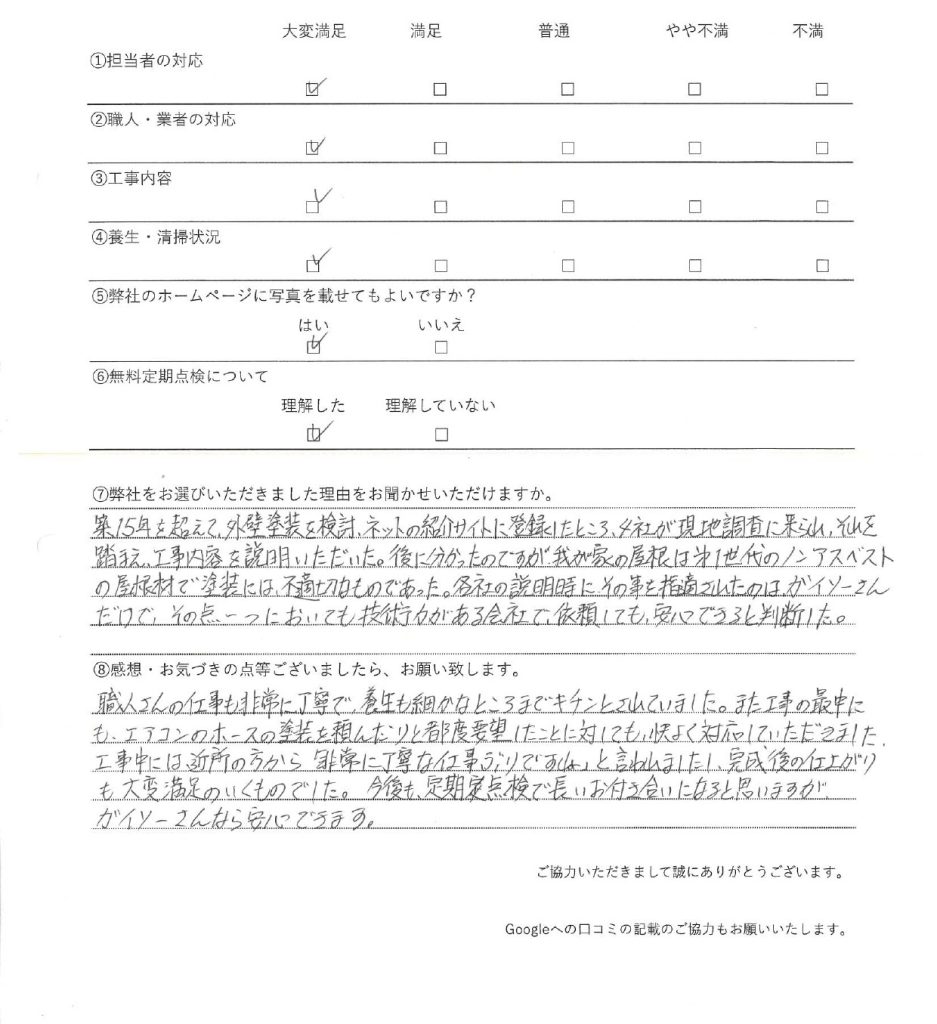 大変満足 満足 普通 やや不満 不満
①担当者の対応
☑ □ □ □ □
②職人・業者の対応
☑ □ □ □ □
③工事内容
☑ □ □ □ □
④養生・清掃状況
☑ □ □ □ □
⑤弊社のホームページに写真を載せてもよいですか？
はい いいえ
☑ □
⑥無料定期点検について
理解した 理解していない
☑ □
⑦弊社をお選びいただきました理由をお聞かせいただけますか。
築15年を超えて、外壁塗装を検討、ネットの紹介サイトに登録したところ、4社が現地調査に来られ、それを
踏まえ、工事内容を説明いただいた。後に分かったのですが我が家の屋根は第1世代のノンアスベスト
の屋根材で塗装には、不適切なものであった。各社の説明時にその事を指摘されたのは、ガイソーさん
だけで、その点一つにおいても技術力がある会社で、依頼しても、安心できると判断した。
⑧感想・お気づきの点等ございましたら、お願い致します。
職人さんの仕事も非常に丁寧で、養生も細かなところまでキチンとされていました。また工事の最中に
も、エアコンのホースの塗装を頼んだりと都度要望したことに対しても、快よく対応していただきました。
工事中には、近所の方から「非常に丁寧な仕事ぶりですね」と言われましたし、完成後の仕上がり
も大変満足のいくものでした。今後も、定期定点検で長いお付き合いになると思いますが、
ガイソーさんなら安心できます。
ご協力いただきまして誠にありがとうございます。
Googleへの口コミの記載のご協力もお願いいたします。